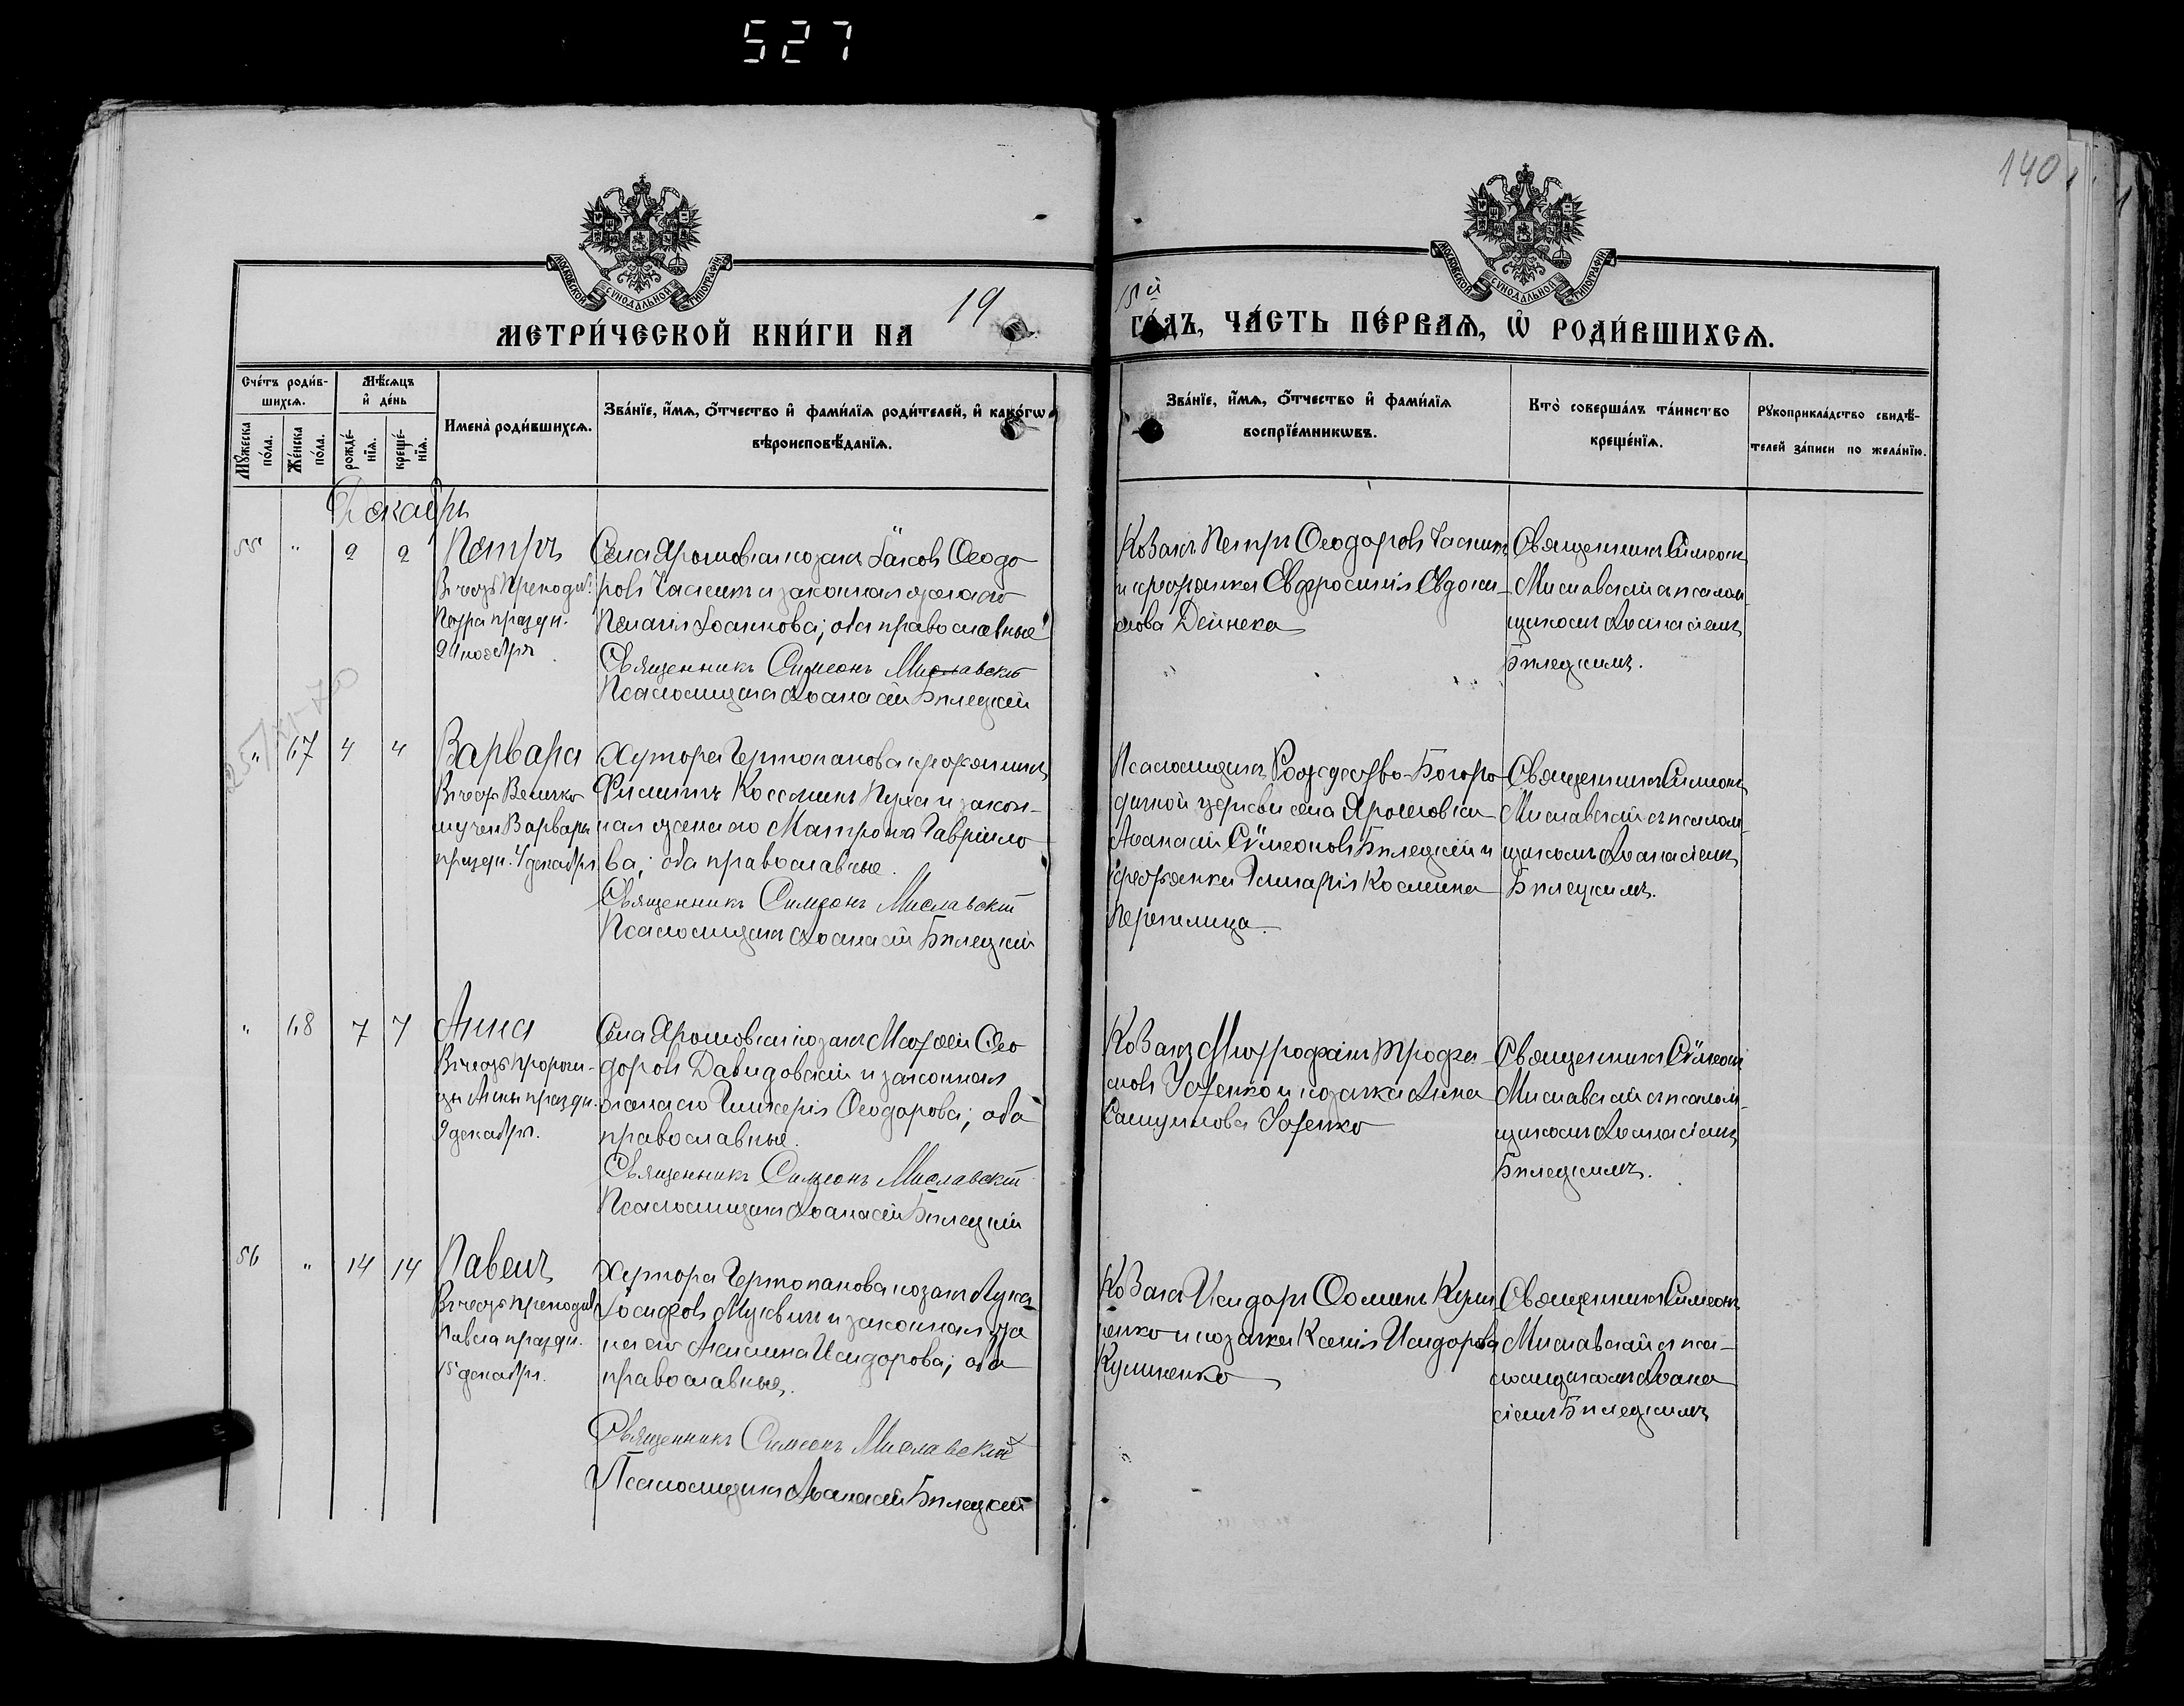 527
140
МОСКОВСКОЙ СУНОДАЛЬНОЙ ТИПОГРАФІИ
МОСКОВСКОЙ СУНОДАЛЬНОЙ ТИПОГРАФІИ
МЕТРИ́ЧЕСКОЙ КНИ́ГИ НА 19
15й ГО́ДЪ, ЧА́СТЬ ПЕ́РВАѦ, Ѡ҆ РОДИ́ВШИХСѦ.
Сче́тъ роди́в-
шихсѧ.
Мѣ́сѧцъ
и҆ де́нь
Мꙋ́жеска
по́ла.
Же́нска
по́ла.
рожде́-
нїѧ.
креще́-
нїѧ.
Имена̀ роди́вшихсѧ.
Зва́нїе, и҆́мѧ, ѻ҆́тчество и҆ фами́лїѧ роди́телей, и҆ како́гѡ
вѣроисповѣ́данїѧ.
Зва́нїе, и҆́мѧ, ѻ҆́тчество и҆ фами́лїѧ
воспрїе́мникѡвъ.
Кто̀ соверша́лъ та́инство
креще́нїѧ.
Рꙋкоприкла́дство свидѣ́-
телей за́писи по жела́нїю.
Декабрь
55 " 2 2
Петръ
Въ честь Преподоб.
Петра праздн.
24 ноября
Села Ярошовки козакъ Іаковъ Ѳеодо
ровъ и законная жена его
Пелагія Іоаннова; оба православные
Священникъ Симеонъ Миславскій
Псаломщикъ Аѳанасій Билецкій
Козакъ Петръ Ѳеодоровъ
и крестьянка Евфросинія Евдоки-
мова Дейнека
Священникъ Симеонъ
Миславскій съ псалом-
щикомъ Аѳанасіемъ
Билецкимъ.
" 47 4 4
Варвара
Въ честь Велико
мучен Варвары
праздн. 4 декабря
Хутора Чертопанова крестьянинъ
Филиппъ Космины и закон-
ная жена его Матрона Гавріило
ва; оба православные.
Священникъ Симеонъ Миславскій
Псаломщикъ Аѳанасій Билецкій
Псаломщикъ Рождество-Богоро
дичной церкви села Ярошовки
Аѳанасій Сѵмеоновъ Билецкій и
крестьянка Гликерія Космина
Перепелица
Священникъ Симеонъ
Миславскій съ псалом-
щикомъ Аѳанасіемъ
Билецкимъ.
" 48 7 7
Анна
Въ честь пророчи-
цы Анны праздн.
9 декабря.
Села Ярошовки козакъ Матѳей Ѳео
доровъ Давидовскій и законная
жена его Гликерія Ѳеодорова; оба
православные.
Священникъ Симеонъ Миславскій
Псаломщикъ Аѳанасій Билецкій
Козакъ Митрофанъ Трофи
мовъ и козачка Анна
Самуилова
Священникъ Сѵмеонъ
Миславскій съ псалом-
щикомъ Аѳанасіемъ
Билецкимъ.
56 " 14 14
Павелъ
Въ честь преподоб
Павла праздн.
15 декабря.
Хутора Чертопанова козакъ Лука
Іосифовъ и законная же
на его Акилина Исидорова; оба
православные.
Священникъ Симеонъ Миславскій
Псаломщикъ Аѳанасій Билецкій
Козакъ Исидоръ Ѳоминъ Кули
ненко и козачка Ксенія Исидорова
Кулиненко
Священникъ Симеонъ
Миславскій съ пса-
ломщикомъ Аѳана
сіемъ Билецкимъ